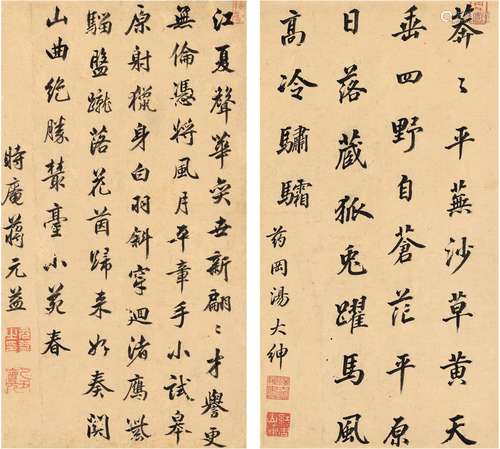 莽〻平蕪沙草黄天
垂四野自蒼茫平原
日落蔵狐兔躍馬風
高冷驌驦
药岡湯大紳
江夏聲華奕世新翩〻才譽更
無倫憑將風月平章手小試皋
原射獵身白羽斜穿迴渚鷹紫
騮蹴落花茵歸来好奏關
山曲絶勝叢臺小苑春
時庵蔣元益